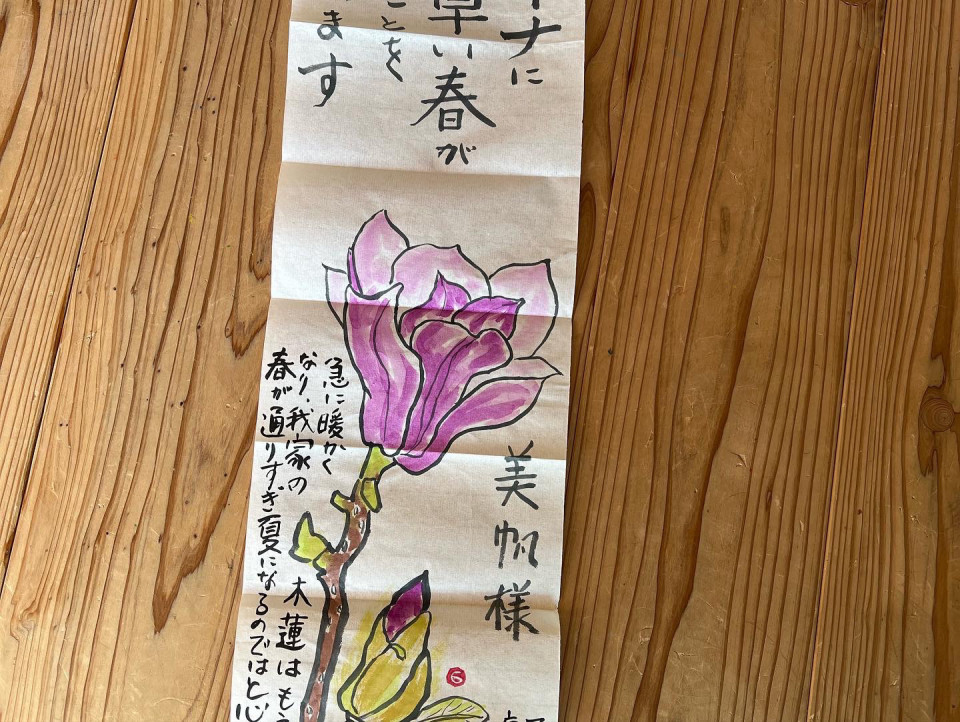 ナに
早い春が
ことを
ます
美帆様
急に暖かく
なり、我家の
木蓮はもう
春が通りすぎ夏になるのではと心